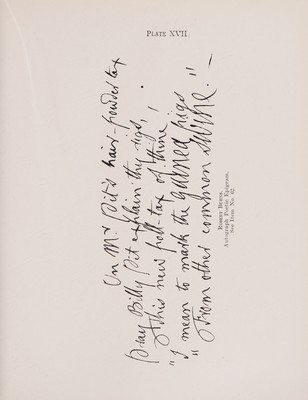 PLATE XVII.
On Mr Pit's hair-powder tax
Pray Billy Pit explain thy rigs,
This new poll-tax of thine!
"I mean to mark the guinea pigs
"From other common Swine."—
ROBERT BURNS.
Autograph Poetic Epigram.
See Item No. 62.